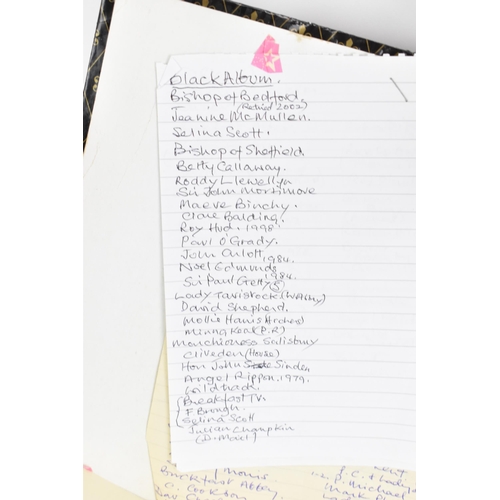 Black Album.
Bishop of Bedford
(Retired 2002)
Jeanine McMullen.
Selina Scott.
Bishop of Sheffield.
Betty Callaway.
Roddy Llewellyn
Sir John Mortimore
Maeve Binchy.
Clare Balding.
Roy Hud. 1998
Paul O'Grady.
John Arlott
1984.
Noel Edmunds
1984.
Sir Paul Getty
Lady Tavistock
David Shepherd.
Mollie Harris (Archers)
Minna Keal (P.R)
Marchioness Salisbury
Cliveden (House)
Hon John Sinden
Angel Rippon. 1979.
Breakfast TV
F Brough.
Selina Scott
Julian Champkin
(D. Mail)
Morris
Buckfast Abbey,
C. Cookson
Kent